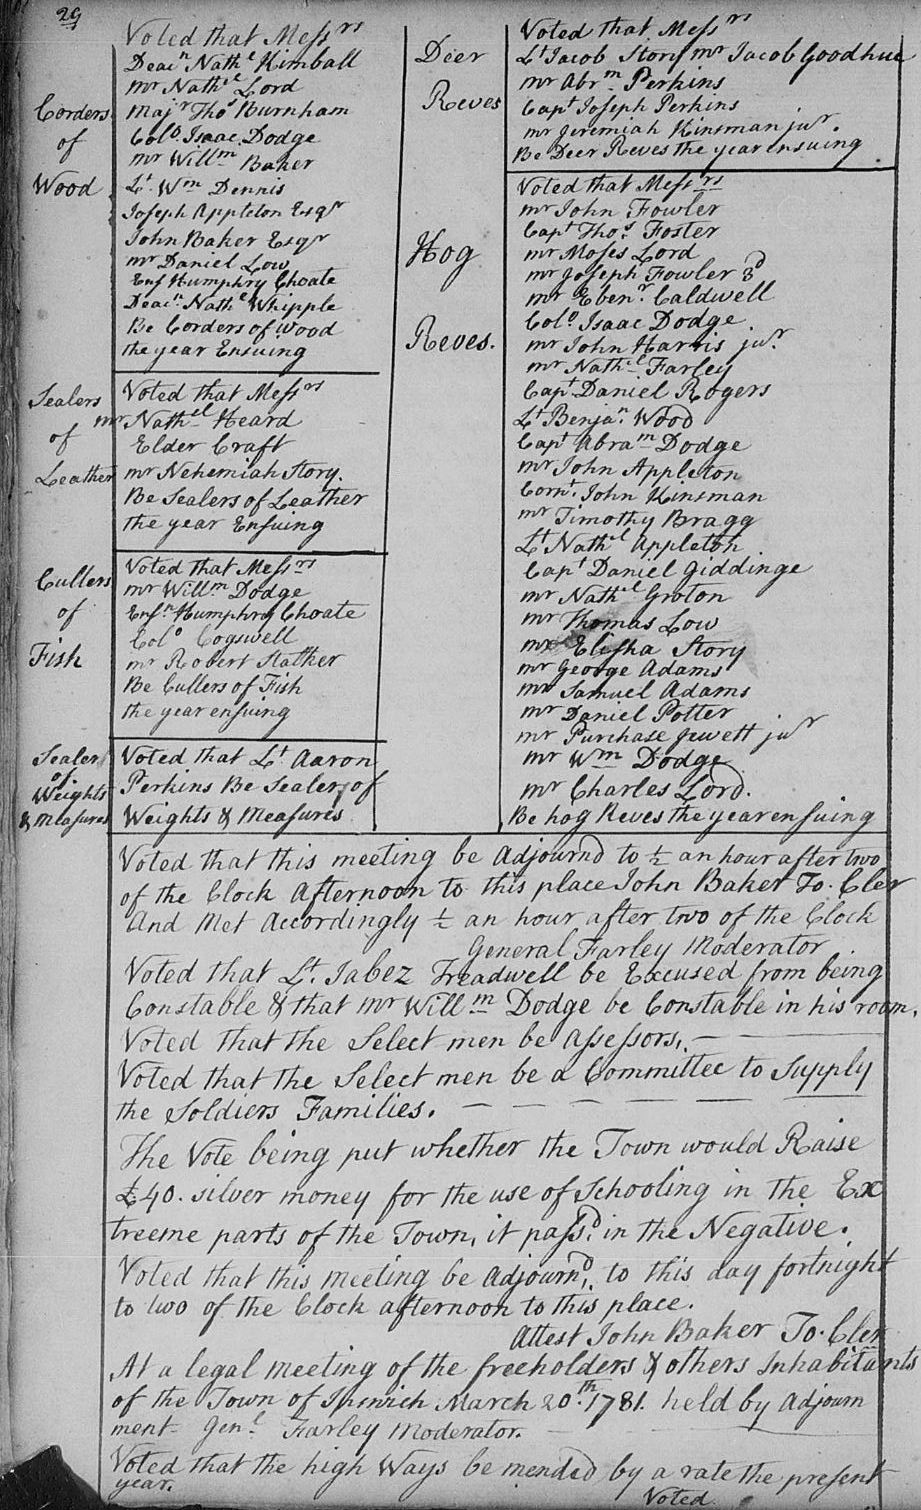 29
Corders
of
Wood
Voted that Messrs
Deacn Nathl Kimball
mr Nathel Lord
Majr Thos Burnham
Colo Isaac Dodge
mr Willm Baker
Lt Wm Dennis
Joseph Appleton Esqr
John Baker Esqr
mr Daniel Low
Ens Humphry Choate
Deacn Nathl Whipple
Be Corders of Wood
the year Ensuing
Sealers
of
Leather
Voted that Messrs
mr Nathel Heard
Elder Craft
mr Nehemiah Story.
Be Sealers of Leather
the year Ensuing
Cullers
of
Fish
Voted that Messrs
mr Willm Dodge
Ensn Humphry Choate
Colo Cogswell
mr Robert Stather
Be Cullers of Fish
the year ensuing
Sealer
of
Weights
& Measures
Voted that Lt Aaron
Perkins Be Sealer of
Weights & Measures
Deer
Reves
Voted that Messrs
Lt Jacob Story mr Jacob Goodhue
mr Abrm Perkins
Capt Joseph Perkins
mr Jeremiah Kinsman jur.
Be Deer Reves the year ensuing
Hog
Reves.
Voted that Messrs
mr John Fowler
Capt Thos Foster
mr Moses Lord
mr Joseph Fowler 3d
mr Ebenr Caldwell
Colo Isaac Dodge
mr John Harris jur
mr Nathel Farley
Capt Daniel Rogers
Lt Benjan Wood
Capt Abram Dodge
mr John Appleton
Cornt John Kinsman
mr Timothy Bragg
Lt Nathel Appleton
Capt Daniel Giddinge
mr Nathel Groton
mr Thomas Low
mr Elisha Story
mr George Adams
mr Samuel Adams
mr Daniel Potter
mr Purchase Jewett jur
mr Wm Dodge
mr Charles Lord.
Be hog Reves the year ensuing
Voted that this meeting be Adjournd to ½ an hour after two
of the Clock Afternoon to this place John Baker To. Cler
And Met Accordingly ½ an hour after two of the Clock
General Farley Moderator
Voted that Lt. Jabez Treadwell be Excused from being
Constable & that mr Willm Dodge be Constable in his room.
Voted that the Select men be assessors.
Voted that the Select men be a Committee to Supply
the Soldiers Families.
The Vote being put whether the Town would Raise
£40. silver money for the use of Schooling in the Ex
treeme parts of the Town, it passd in the Negative.
Voted that this meeting be Adjournd, to this day fortnight
to two of the Clock afternoon to this place.
Attest John Baker To. Cler
At a legal meeting of the freeholders & others Inhabitants
of the Town of Ipswich March 20th. 1781. held by Adjourn
ment Genl Farley Moderator.
Voted that the high Ways be mended by a rate the present
year.
Voted